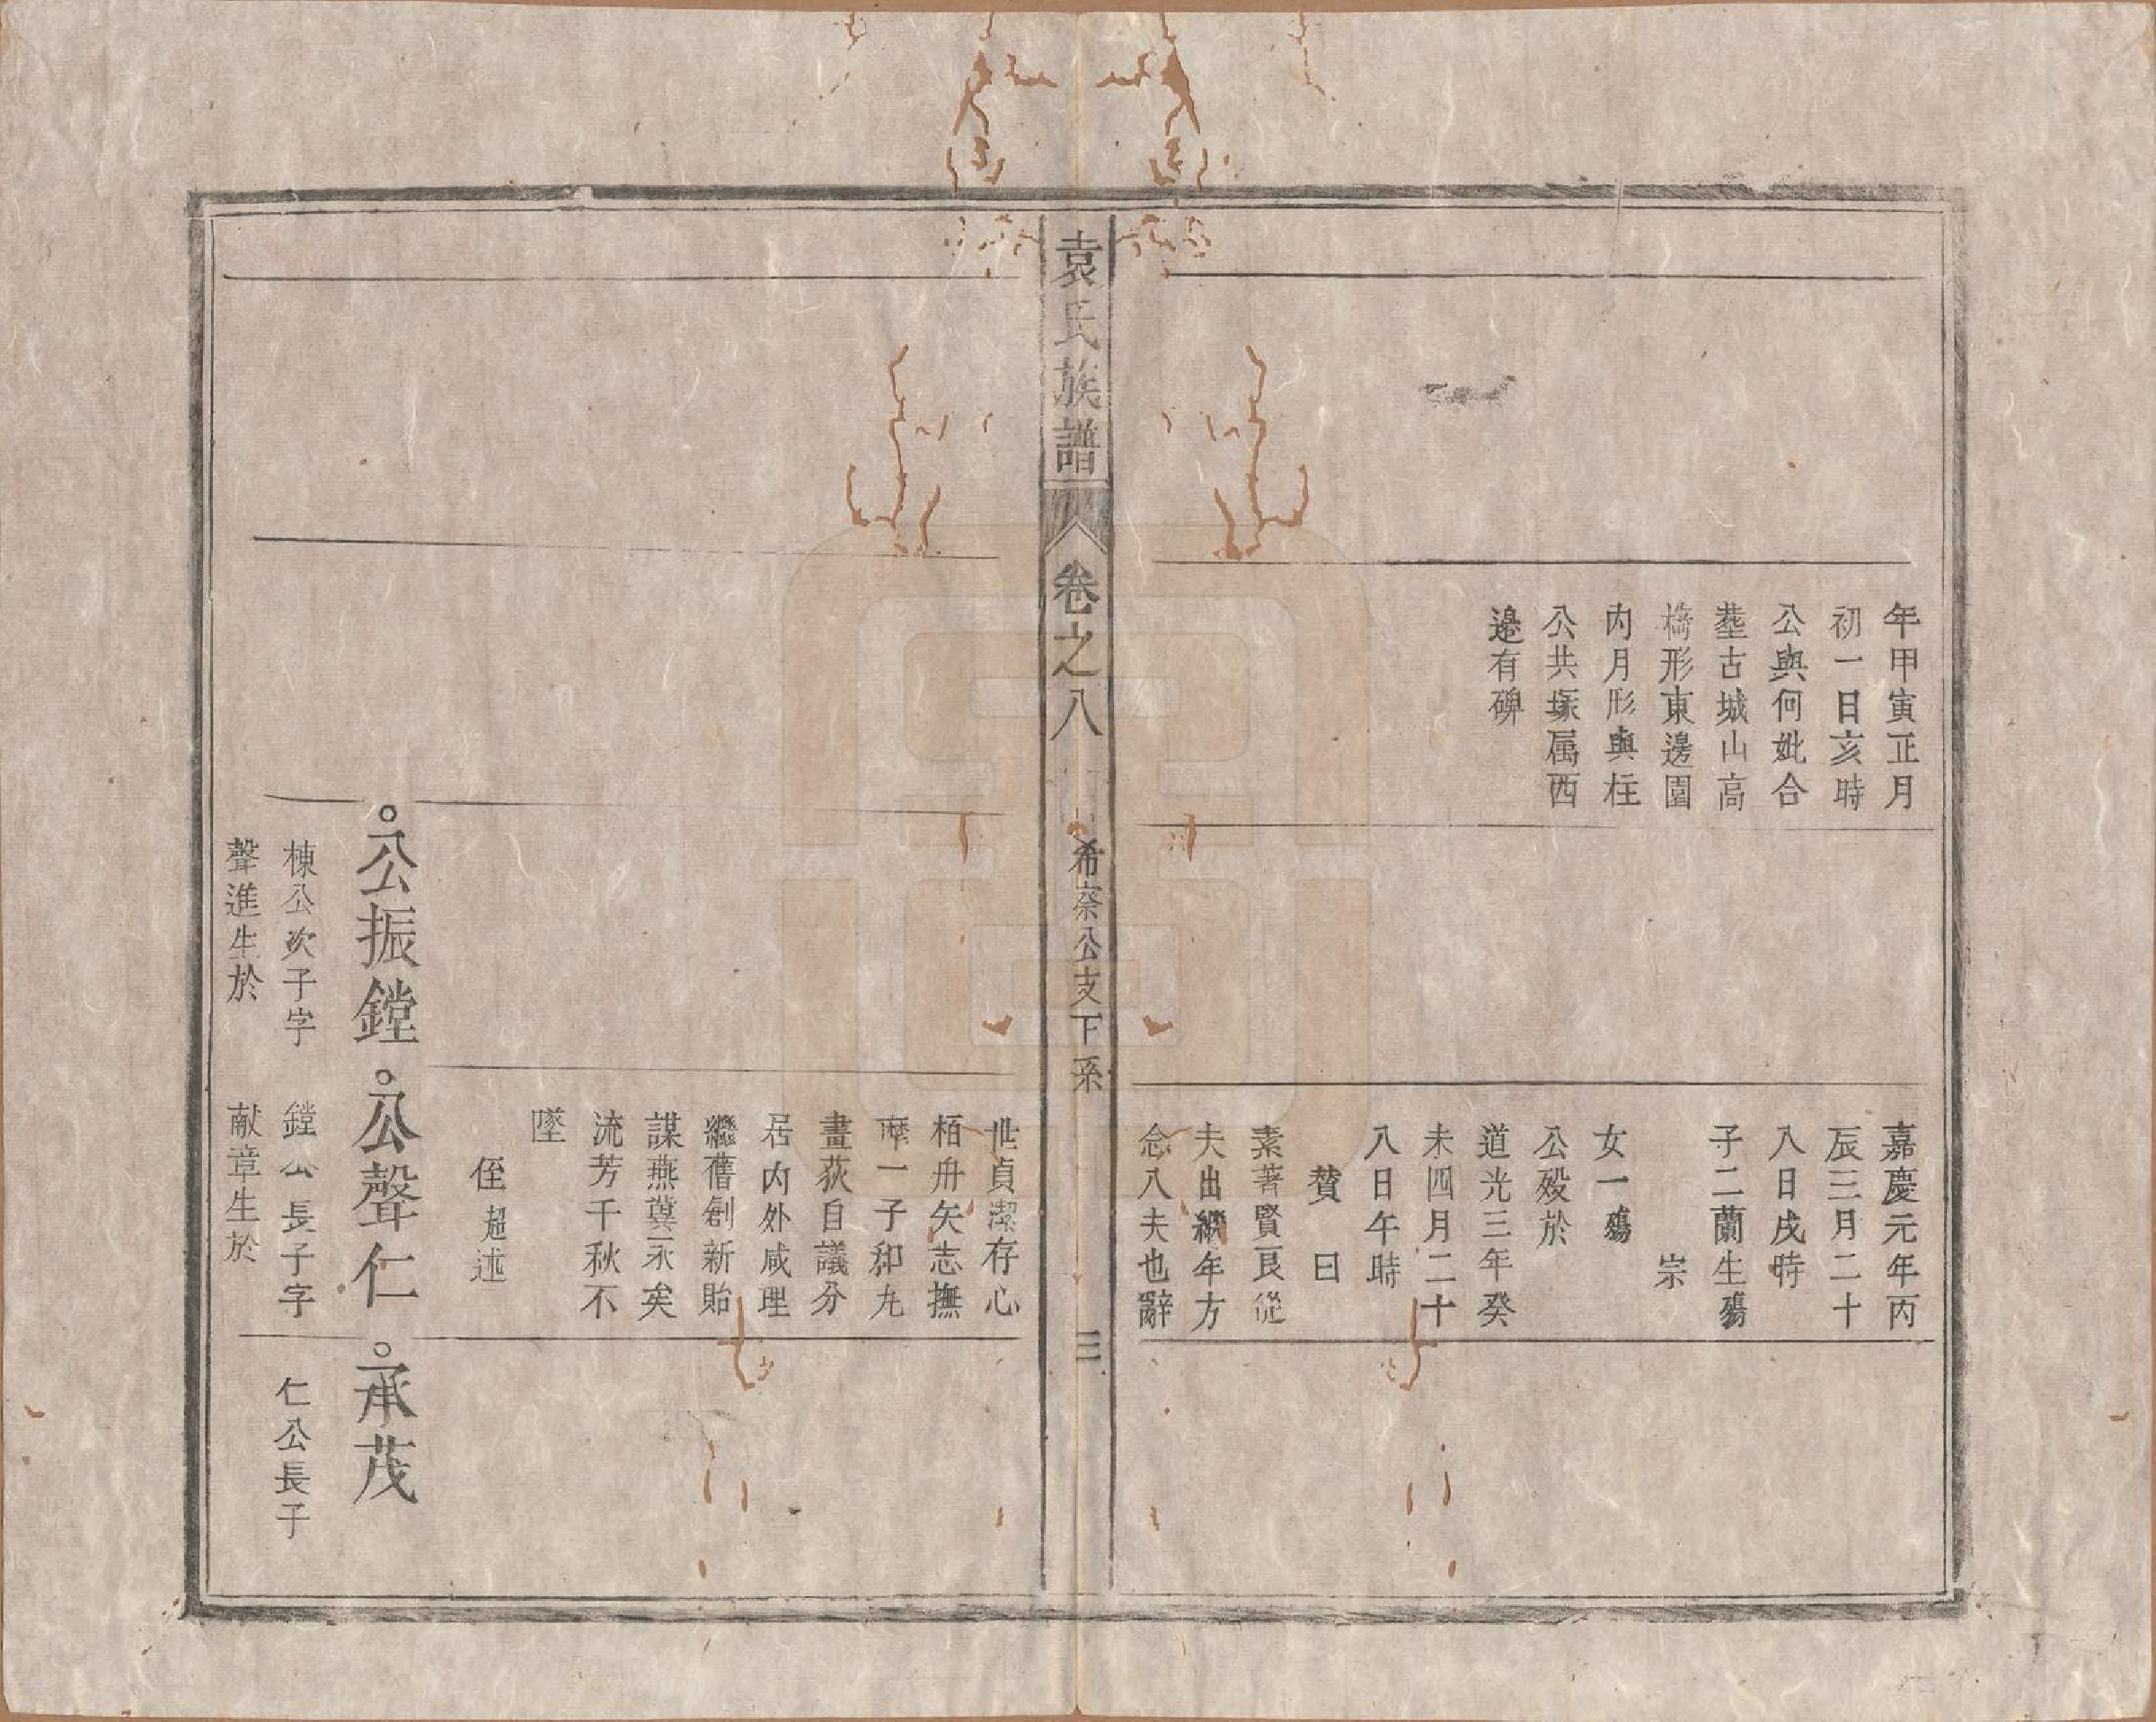 年甲寅正月
初一日亥時
公與何妣合
塟古城山高
椅形東邊園
内月形與柱
公共塚属西
邉有碑
嘉慶元年丙
辰三月二十
八日戌時
子二蘭生殤
宗
女一殤
公殁於
道光三年癸
未四月二十
八日午時
賛曰
素著賢良從
夫出繼年方
念八夫也辭
袁氏族譜
卷之八
希寮公支下系
三
世貞潔存心
栢舟矢志撫
摩一子和丸
畫荻自議分
居内外咸理
繼舊創新貽
謀燕翼永矣
流芳千秋不
墜
侄超述
公振鏜
棟公次子字
聲進生於
公聲仁
鏜公長子字
献章生於
承茂
仁公長子